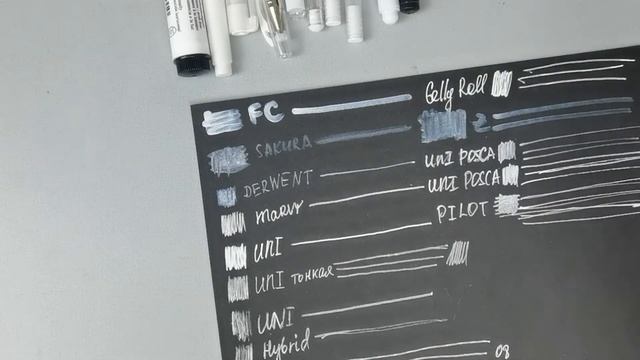 FC
SAKURA
DERWENT
MARVY
UNI
UNI тонкая
UNI
Hybrid
Gelly Roll
2
UNI POSCA
UNI POSCA
PILOT
08